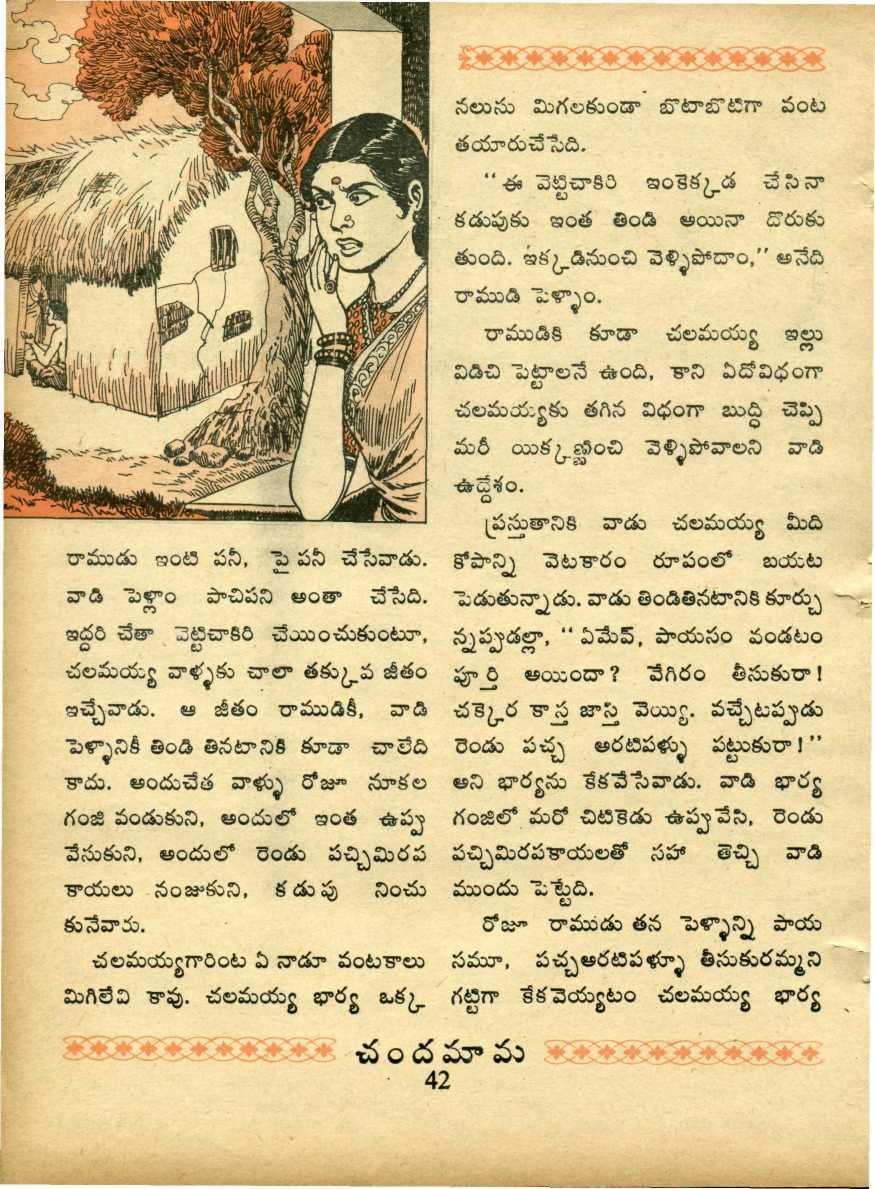 రాముడు ఇంటి పనీ, పై పనీ చేసేవాడు.
వాడి పెళ్లాం పాచిపని అంతా చేసేది.
ఇద్దరి చేతా వెట్టిచాకిరి చేయించుకుంటూ,
చలమయ్య వాళ్ళకు చాలా తక్కువ జీతం
ఇచ్చేవాడు. ఆ జీతం రాముడికీ, వాడి
పెళ్ళానికీ తిండి తినటానికి కూడా చాలేది
కాదు. అందుచేత వాళ్ళు రోజూ నూకల
గంజి వండుకుని, అందులో ఇంత ఉప్పు
వేసుకుని, అందులో రెండు పచ్చిమిరప
కాయలు నంజుకుని, కడుపు నించు
కునేవారు.
చలమయ్యగారింట ఏ నాడూ వంటకాలు
మిగిలేవి కావు. చలమయ్య భార్య ఒక్క
నలుసు మిగలకుండా బొటాబొటిగా వంట
తయారుచేసేది.
“ఈ వెట్టిచాకిరి ఇంకెక్కడ చేసినా
కడుపుకు ఇంత తిండి అయినా దొరుకు
తుంది. ఇక్కడినుంచి వెళ్ళిపోదాం,” అనేది
రాముడి పెళ్ళాం.
రాముడికి కూడా చలమయ్య ఇల్లు
విడిచి పెట్టాలనే ఉంది, కాని ఏదోవిధంగా
చలమయ్యకు తగిన విధంగా బుద్ధి చెప్పి
మరీ యిక్కణ్ణించి వెళ్ళిపోవాలని వాడి
ఉద్దేశం.
ప్రస్తుతానికి వాడు చలమయ్య మీది
కోపాన్ని వెటకారం రూపంలో బయట
పెడుతున్నాడు. వాడు తిండితినటానికి కూర్చు
న్నప్పుడల్లా, “ ఏమేవ్, పాయసం వండటం
పూర్తి అయిందా? వేగిరం తీసుకురా!
చక్కెర కాస్త జాస్తి వెయ్యి. వచ్చేటప్పుడు
రెండు పచ్చ అరటిపళ్ళు పట్టుకురా!”
అని భార్యను కేకవేసేవాడు. వాడి భార్య
గంజిలో మరో చిటికెడు ఉప్పువేసి, రెండు
పచ్చిమిరపకాయలతో సహా తెచ్చి వాడి
ముందు పెట్టేది.
రోజూ రాముడు తన పెళ్ళాన్ని పాయ
సమూ, పచ్చఅరటిపళ్ళూ తీసుకురమ్మని
గట్టిగా కేకవెయ్యటం చలమయ్య భార్య
చందమామ
42